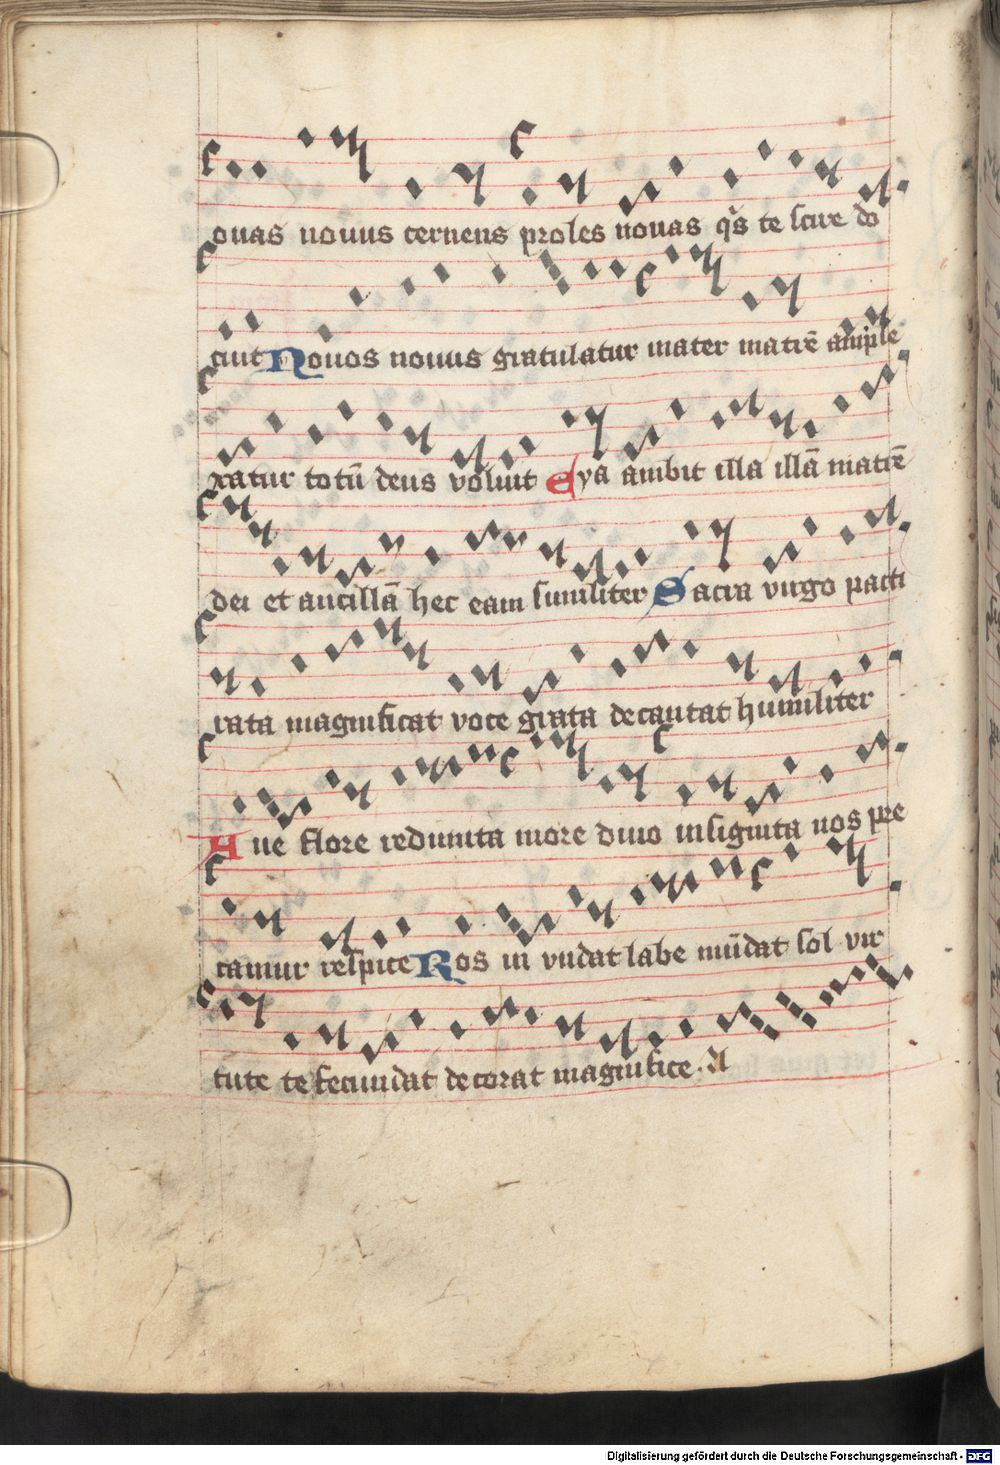 ouas nouus cernens proles nouas q̄s te scire do
cuit Nouos nouus gratulatur mater matrē ample
xatur totū deus voluit Eya ambit illa illā matrē
dei et ancillā hec eam similiter Sacra virgo pacti
rata magnificat voce grata decantat humiliter
Aue flore redimita more diuo insignita nos pre
camur respice Ros in vndat labe mūdat sol vir
tute te fecundat decorat magnifice. A
Digitalisierung gefördert durch die Deutsche Forschungsgemeinschaft - DFG